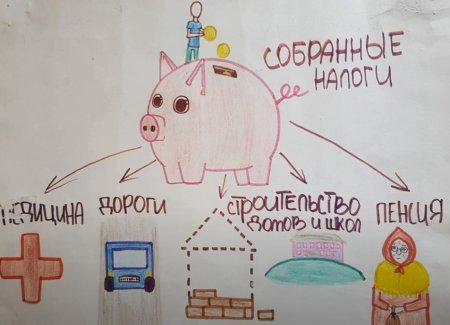 СОБРАННЫЕ
НАЛОГИ
МЕДИЦИНА
ДОРОГИ
СТРОИТЕЛЬСТВО
ДОМОВ И ШКОЛ
ПЕНСИЯ